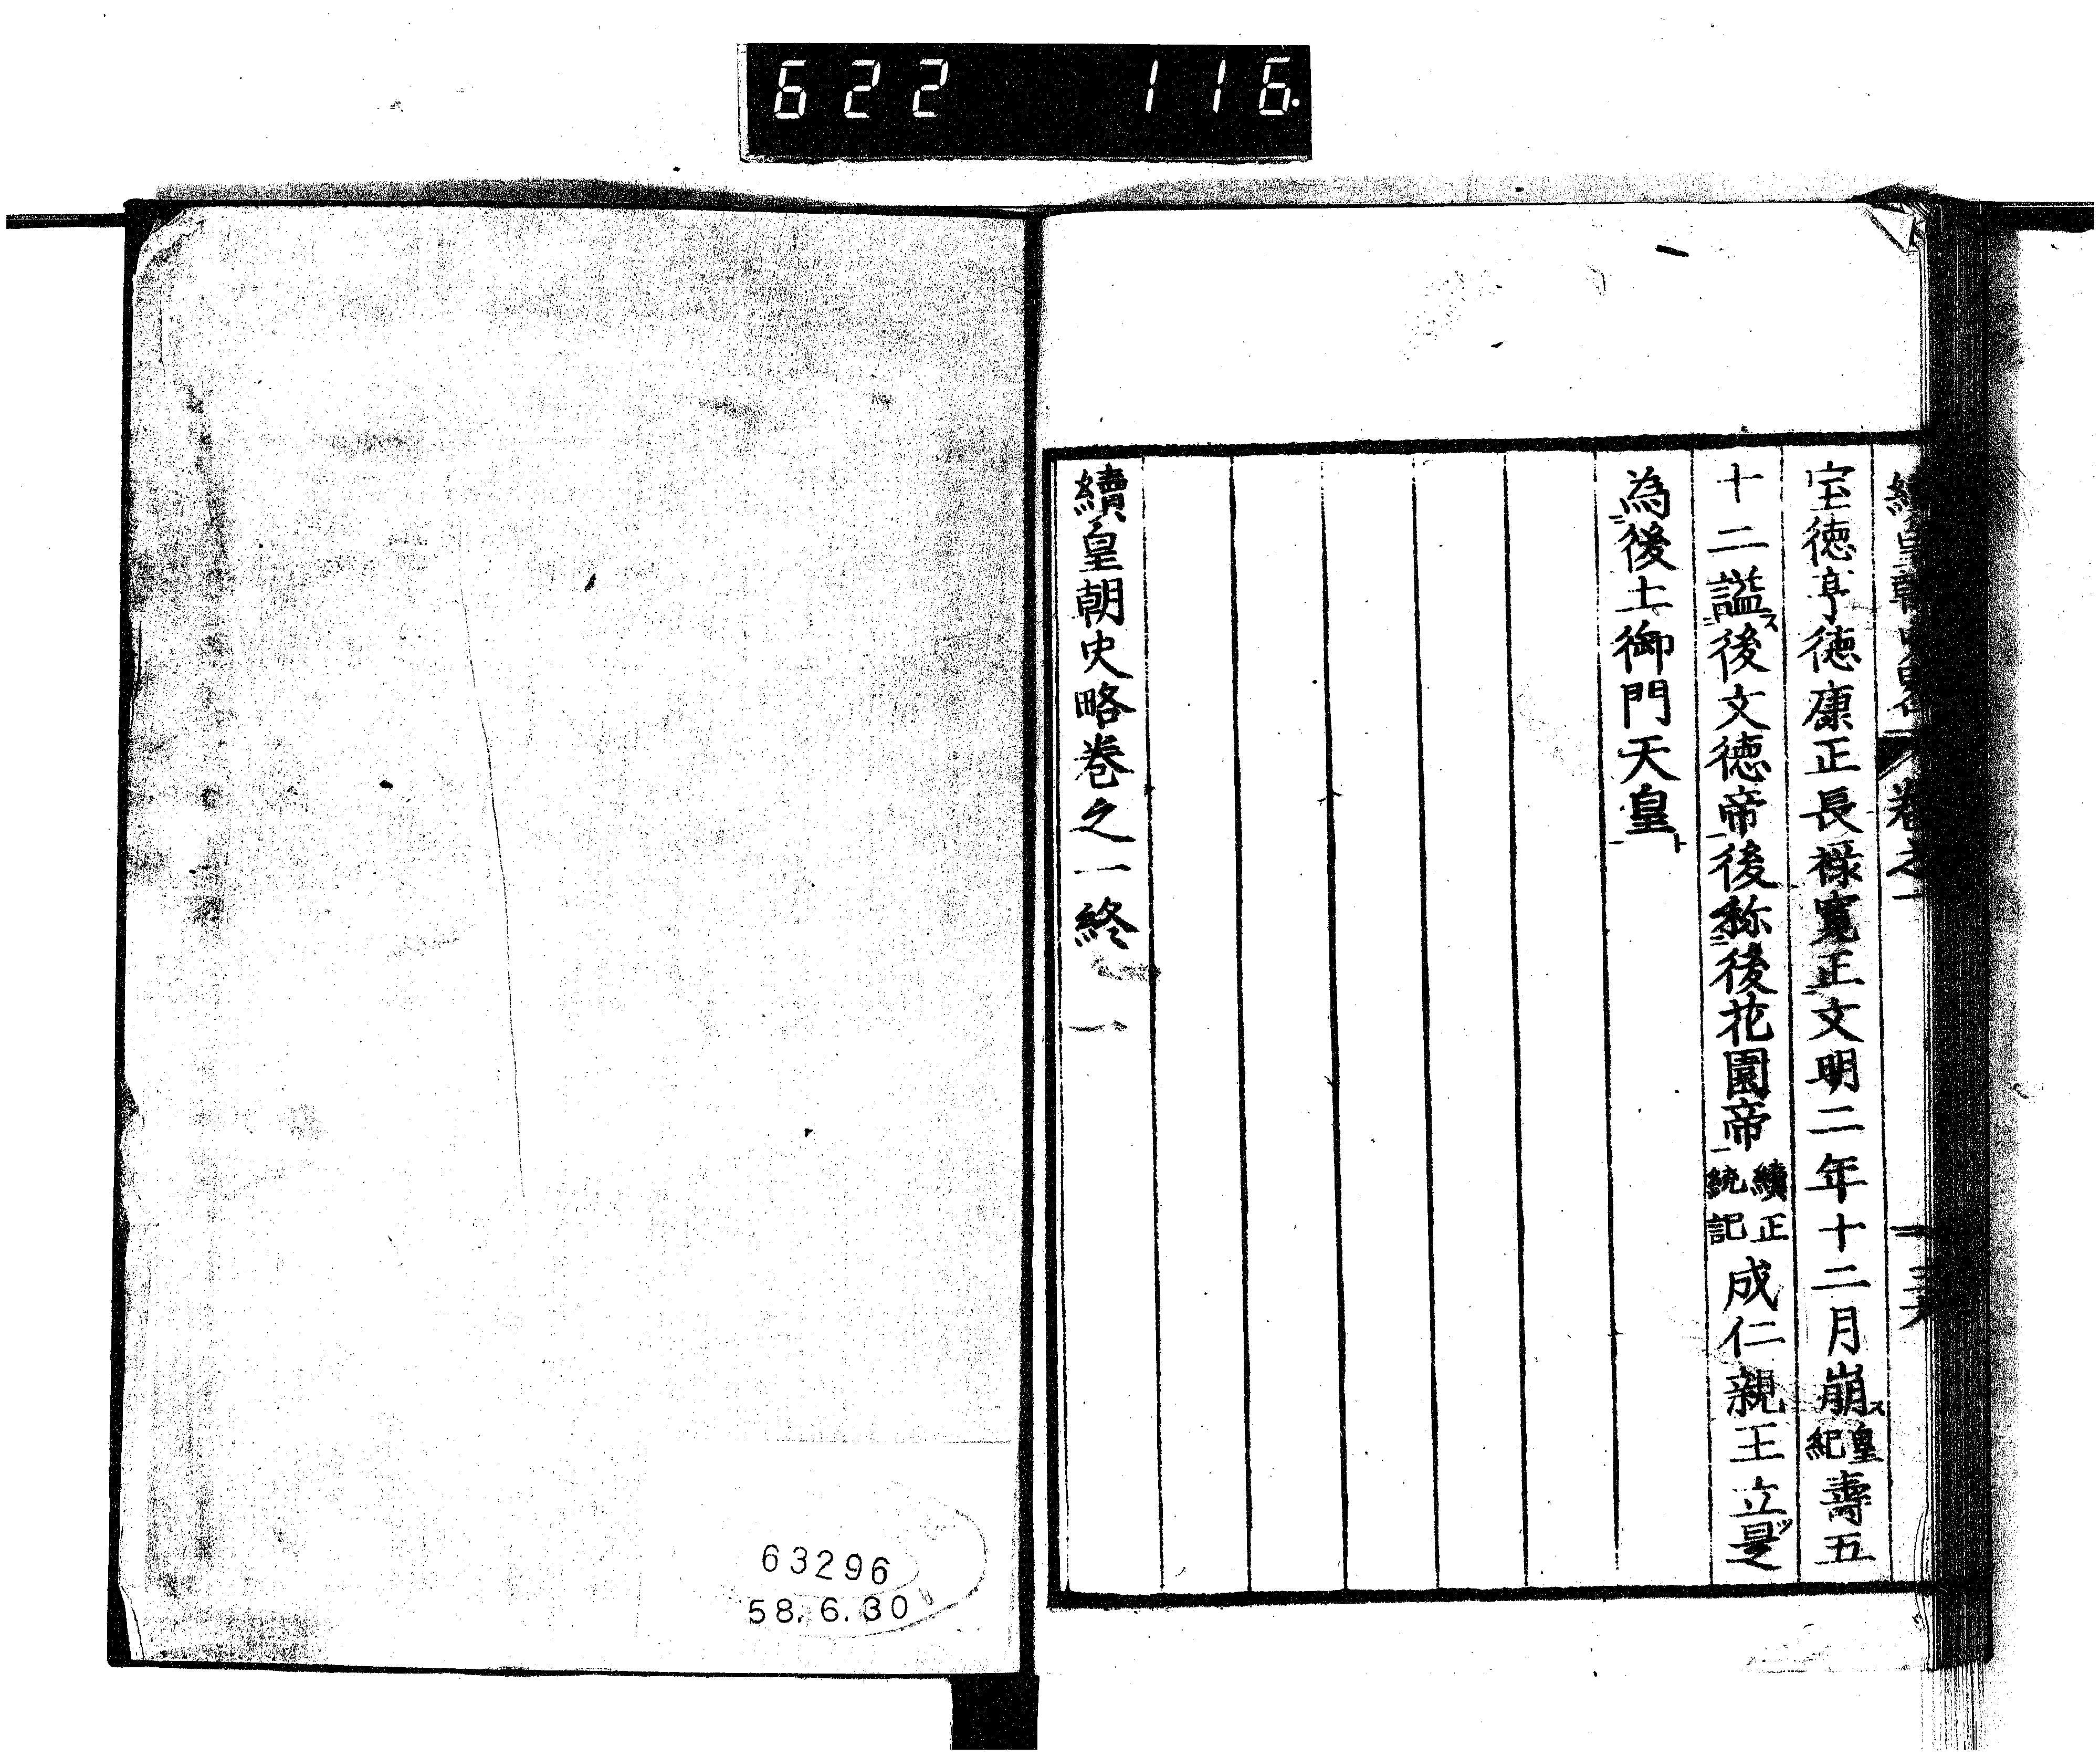 622 116.
續皇朝史略 卷之一
宝徳亨徳康正長禄寛正文明二年十二月崩ス皇紀壽五
十二謚ス後文徳帝後称後花園帝續正統記成仁親王立ツ是
為後土御門天皇ト
續皇朝史略巻之一終
63296
58.6.30